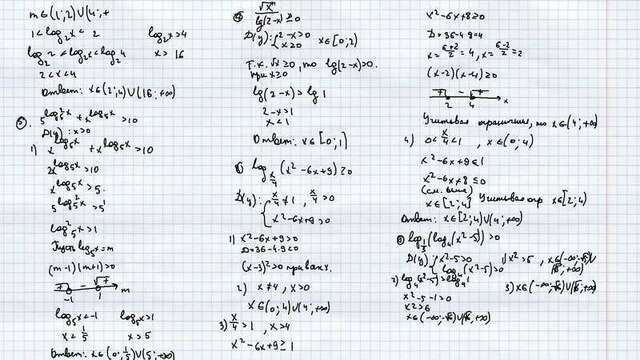 m∈(1;2)∪(4;+
1<log₂x<2
log₂x>4
log₂2<log₂x<log₂4
x>16
2<x<4
Ответ: x∈(2;4)∪(16;+∞)
5^log₅²x + x^log₅x > 10
D(y): x>0
1) x^log₅x + x^log₅x > 10
2x^log₅x > 10
x^log₅x > 5
5^log₅²x > 5¹
log₅²x > 1
Пусть log₅x = m
(m-1)(m+1)>0
-1 1 m
log₅x<-1 log₅x>1
x<1/5 x>5
Ответ: x∈(0;1/5)∪(5;+∞)
√x
lg(2-x) ≥0
D(y): {2-x>0
x≥0 x∈[0;2)
Т.к. √x≥0, то lg(2-x)>0.
при x≥0
lg(2-x)>lg1
2-x>1
x<1
Ответ: x∈[0;1)
log x/4 (x²-6x+9)≥0
D(y): {x/4≠1, x/4>0
x²-6x+9>0
1) x²-6x+9>0
D=36-4·9=0
(x-3)²>0 при всех
2) x≠4, x>0
x∈(0;4)∪(4;+∞)
3) x/4>1, x>4
x²-6x+9≥1
x²-6x+8≥0
D=36-4·8=4
x=(6+2)/2=4, x=(6-2)/2=2
(x-2)(x-4)≥0
2 4 x
Учитывая ограничения, то x∈(4;+∞)
4) 0<x/4<1, x∈(0;4)
x²-6x+9≤1
x²-6x+8≤0
(см. выше) Учитывая огр
x∈[2;4] x∈[2;4)
Ответ: x∈[2;4)∪(4;+∞)
log 1/3 (log₄(x²-5))>0
D(y) {x²-5>0
log₄(x²-5)>0
1) x²>5, x∈(-∞;-√5)∪(√5;+∞)
2) log₄(x²-5)>log₄1
x²-5-1>0
x²>6
x∈(-∞;-√6)∪(√6;+∞)
3) x∈(-∞;-√6)∪(√6;+∞)